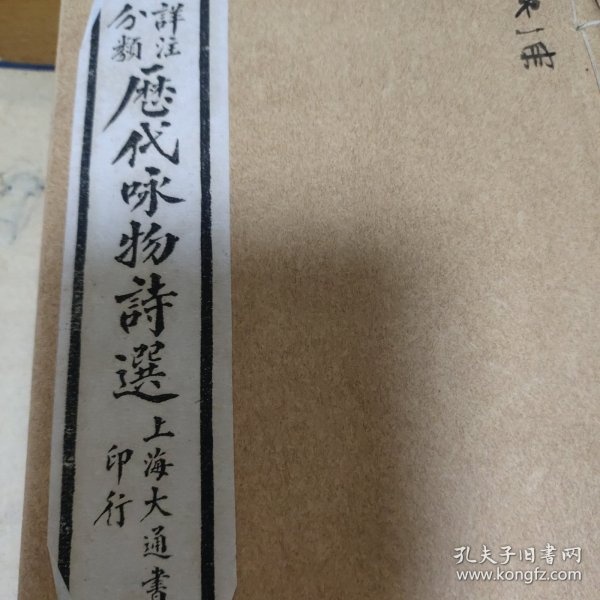 詳注
分類
歷代咏物詩選
上海大通書
印行
孔夫子旧书网
www.kongfz.com